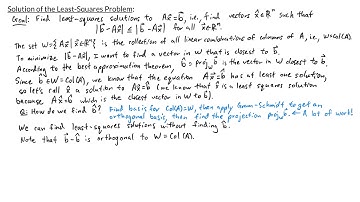 Solution of the Least-Squares Problem:
Goal: Find least-squares solutions to Ax⃗=b⃗, i.e., find vectors x̂∈ℝⁿ such that
‖b⃗-Ax̂‖ ≤ ‖b⃗-Ax⃗‖ for all x⃗∈ℝⁿ.
The set W={Ax⃗ | x⃗∈ℝⁿ} is the collection of all linear combinations of columns of A, i.e., W=Col(A).
To minimize ‖b⃗-Ax⃗‖, I want to find a vector in W that is closest to b⃗.
According to the best approximation theorem, b̂=proj_W b⃗ is the vector in W closest to b⃗.
Since b̂∈W=Col(A), we know that the equation Ax⃗=b̂ has at least one solution,
so let's call x̂ a solution to Ax⃗=b̂ (we know that x̂ is a least squares solution
because Ax̂=b̂ which is the closest vector in W to b⃗).
Q: How do we find b̂? Find basis for Col(A)=W, then apply Gram-Schmidt, to get an
orthogonal basis, then find the projection proj_W b⃗. ← A lot of work!
We can find least-squares solutions without finding b̂.
Note that b⃗-b̂ is orthogonal to W=Col(A).